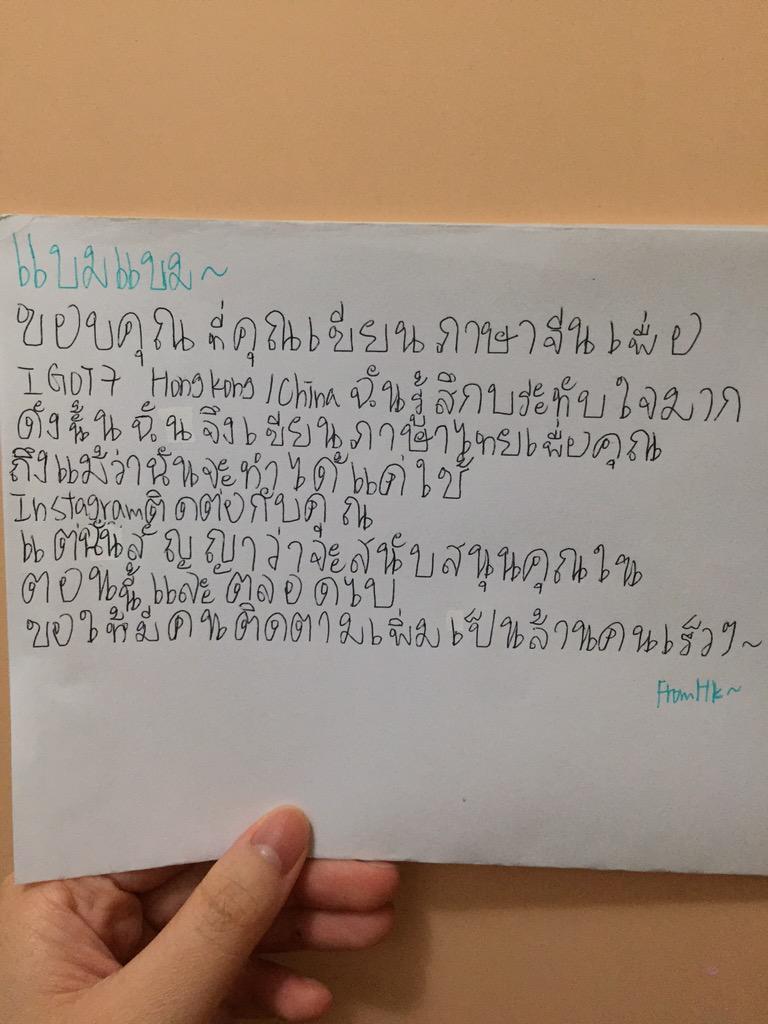 แบมแบม~
ขอบคุณ ที่คุณเขียนภาษาจีนเพื่อ
IGOT7 Hongkong/China ฉันรู้สึกประทับใจมาก
ดังนั้นฉันจึงเขียนภาษาไทยเพื่อคุณ
ถึงแม้ว่านั้นจะทำได้แค่ใช้
Instagramติดต่อกับคุณ
แต่นั้นสัญญาว่าจะสนับสนุนคุณใน
ตอนนี้และตลอดไป
ขอให้มีคนติดตามเพิ่มเป็นล้านคนเร็วๆ~
From HK~